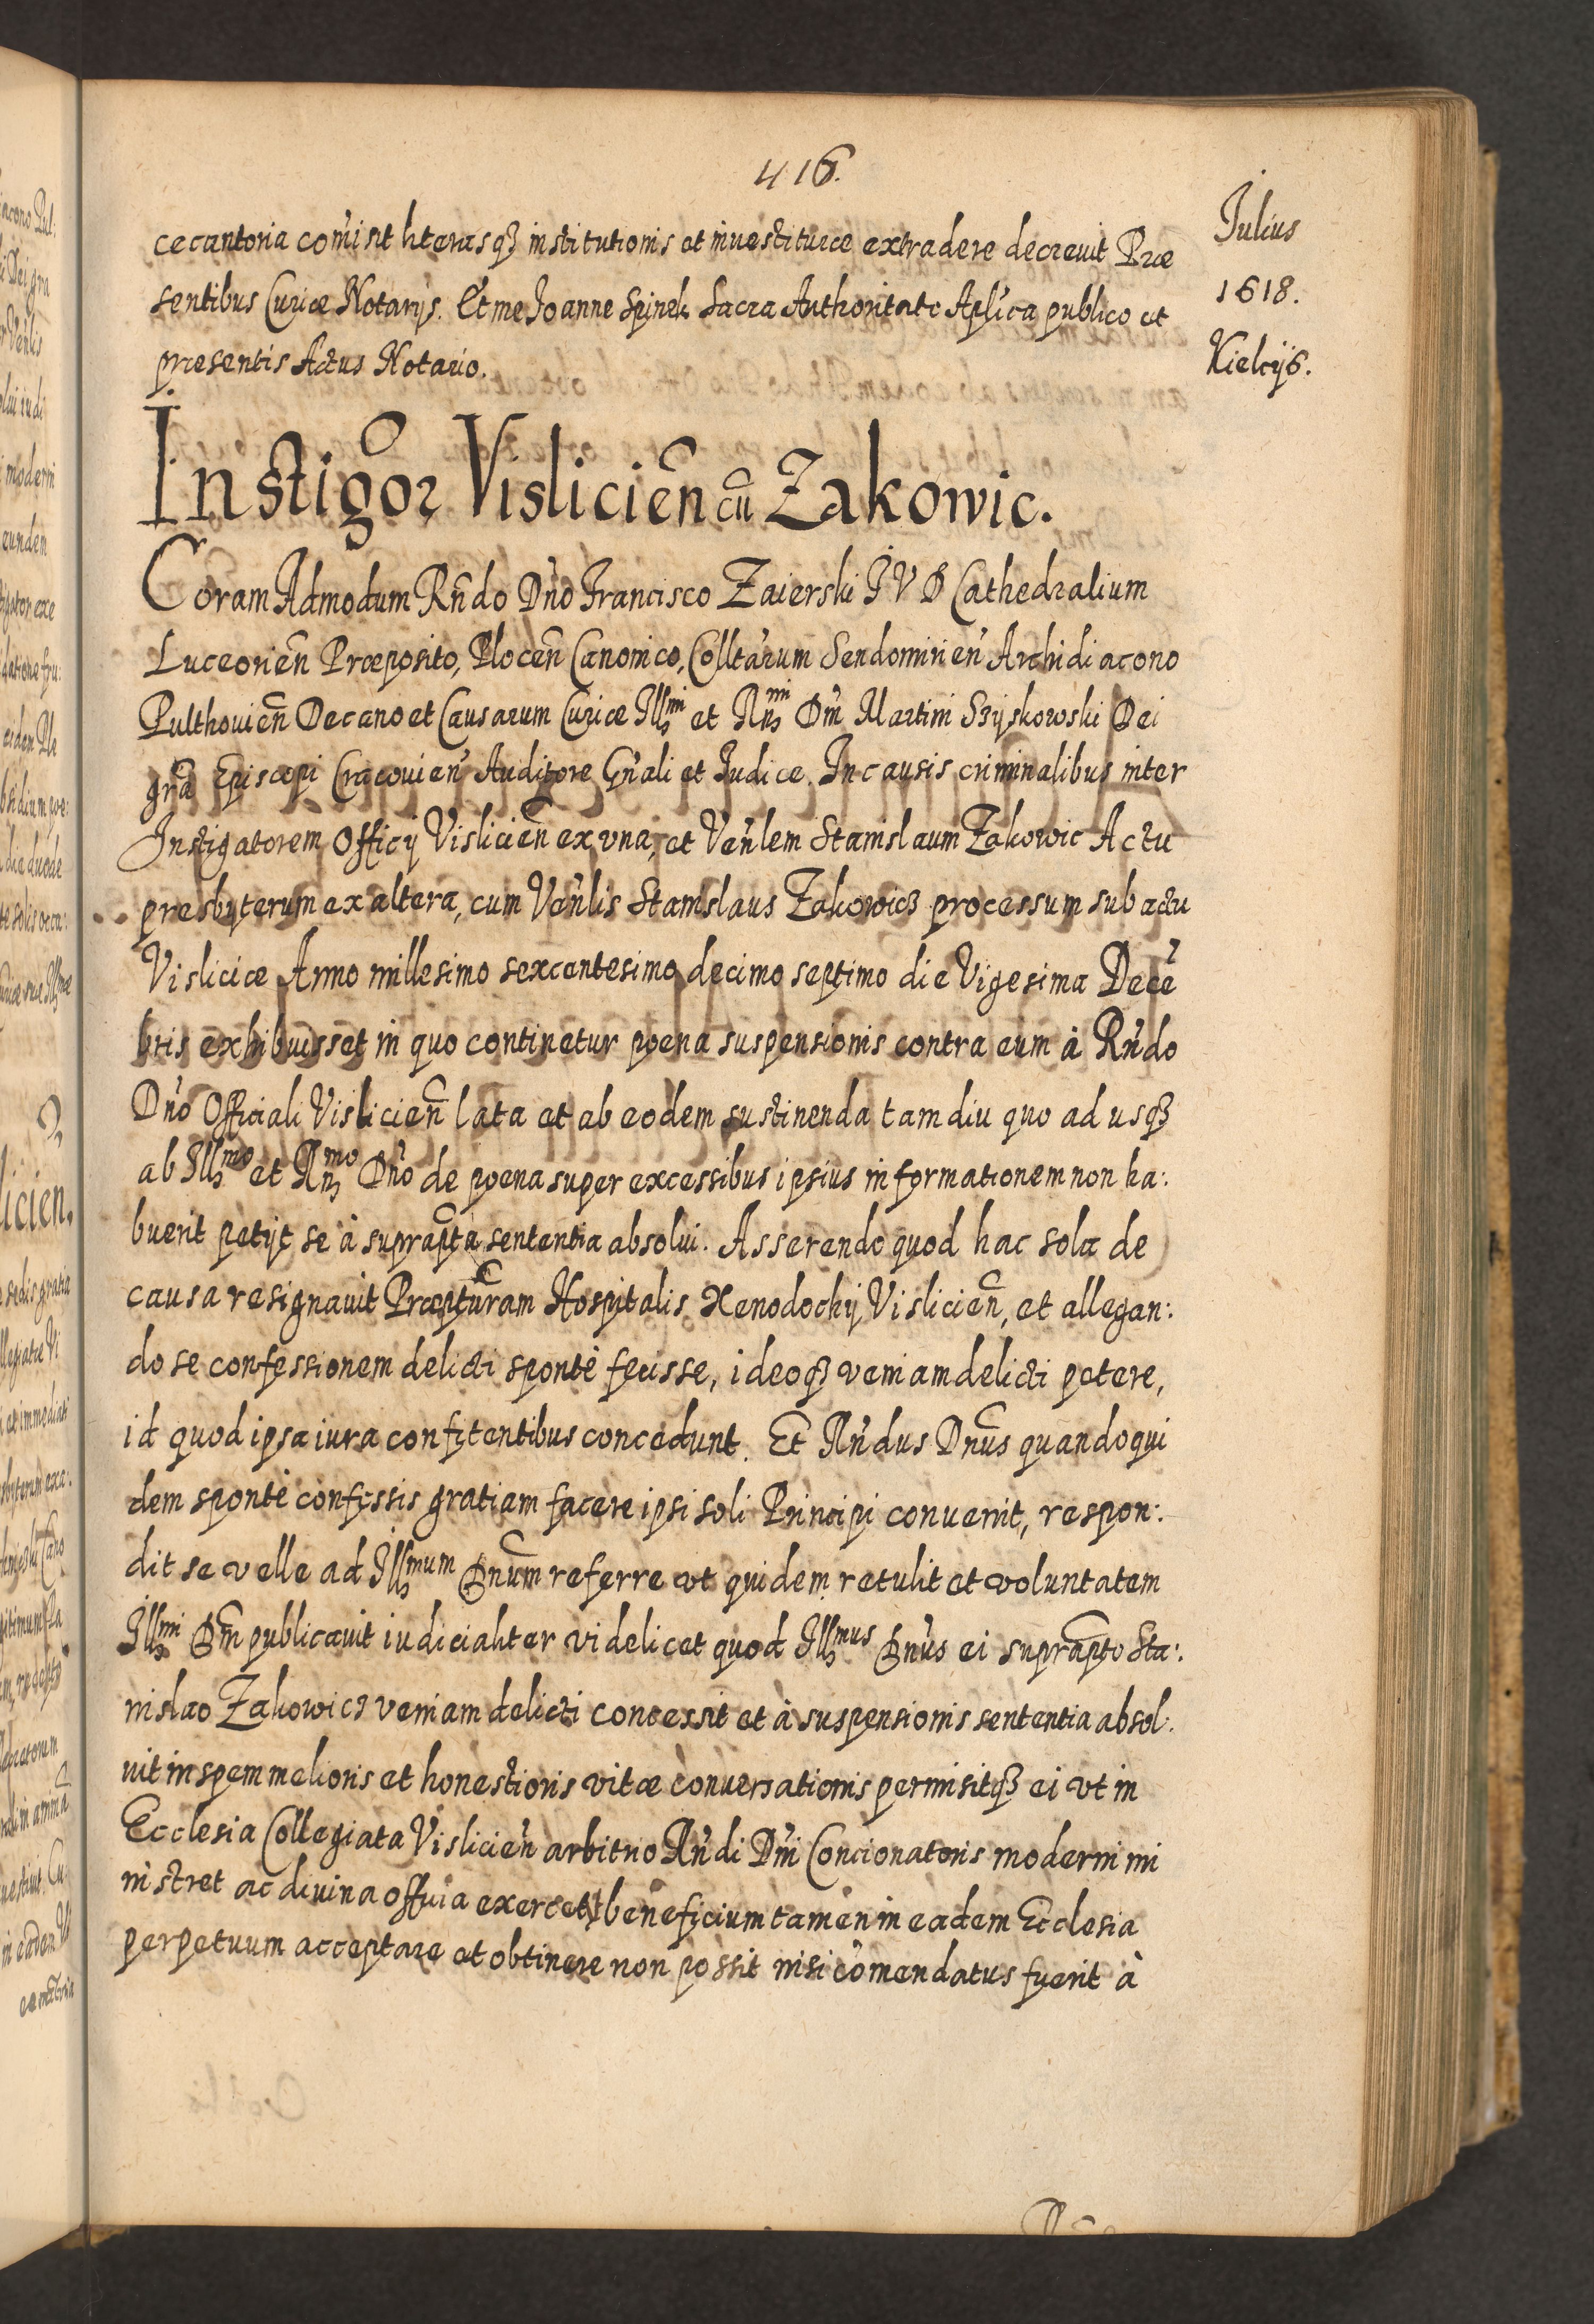 416.
Julius
1618.
Kielcijs.
cecantoria com̃isit literasqꝫ institutionis et inuestiturae extradere decreuit Prae
sentibus Curiae Notarijs. Et me Joanne Spinek Sacra Authoritate Aplĩca publico et
praesentis Actus Notario.
Instigor̃ Vislicień cũ Zakowic.
Coram Admodum Rñdo Dño Francisco Zaierski J V D Cathedralium
Luceorień Praeposito, Plocen̄ Canonico, Colltãrum Sendomirień Archidiacono
Pulthouień Decano et Causarum Curiae Illsmi et Rnsmi Dñi Martini Szyskowski Dei
grã Episcopi Cracouień Auditore Gñali et Judice. In causis criminalibus inter
Instigatorem Officij Vislicień ex vna, et Veñlem Stanislaum Zakowic Actu
presbyterum ex altera, cum Veñlis Stanislaus Zakowicz processum sub actu
Visliciae Anno millesimo sexcentesimo decimo septimo die Vigesima Decẽ
bris exhibuisset in quo continetur poena suspensionis contra eum à Rñdo
Dño Officiali Vislicień lata et ab eodem sustinenda tam diu quo ad usqꝫ
ab Illsmo et Rnsmo Dño de poena super excessibus ipsius informationem non ha:
buerit petijt se à suprapta sententia absolui. Asserendo quod hac sola de
causa resignauit Praeptũram Hospitalis Xenodochij Vislicień, et allegan:
do se confessionem delicti spontè fecisse, ideoqꝫ veniam delicti petere,
id quod ipsa iura confitentibus concedunt. Et Rñdus Dnũs quandoqui
dem spontè confessis gratiam facere ipsi soli Principi conuenit, respon:
dit se velle ad Illsmum Dnũm referre vt quidem retulit et voluntatem
Illsmi Dñi publicauit iudicialiter videlicet quod Illsmus Dnũs ei suprapto Sta:
nislao Zakowicz veniam delicti concessit et à suspensionis sententia absol:
uit in spem melioris et honestioris vitae conuersationis permisitqꝫ ei vt in
Ecclesia Collegiata Vislicień arbitrio Rñdi Dñi Concionatoris moderni mi
nistret ac diuina officia exerceat beneficium tamen in eadem Ecclesia
perpetuum acceptare et obtinere non possit nisi cõmendatus fuerit à